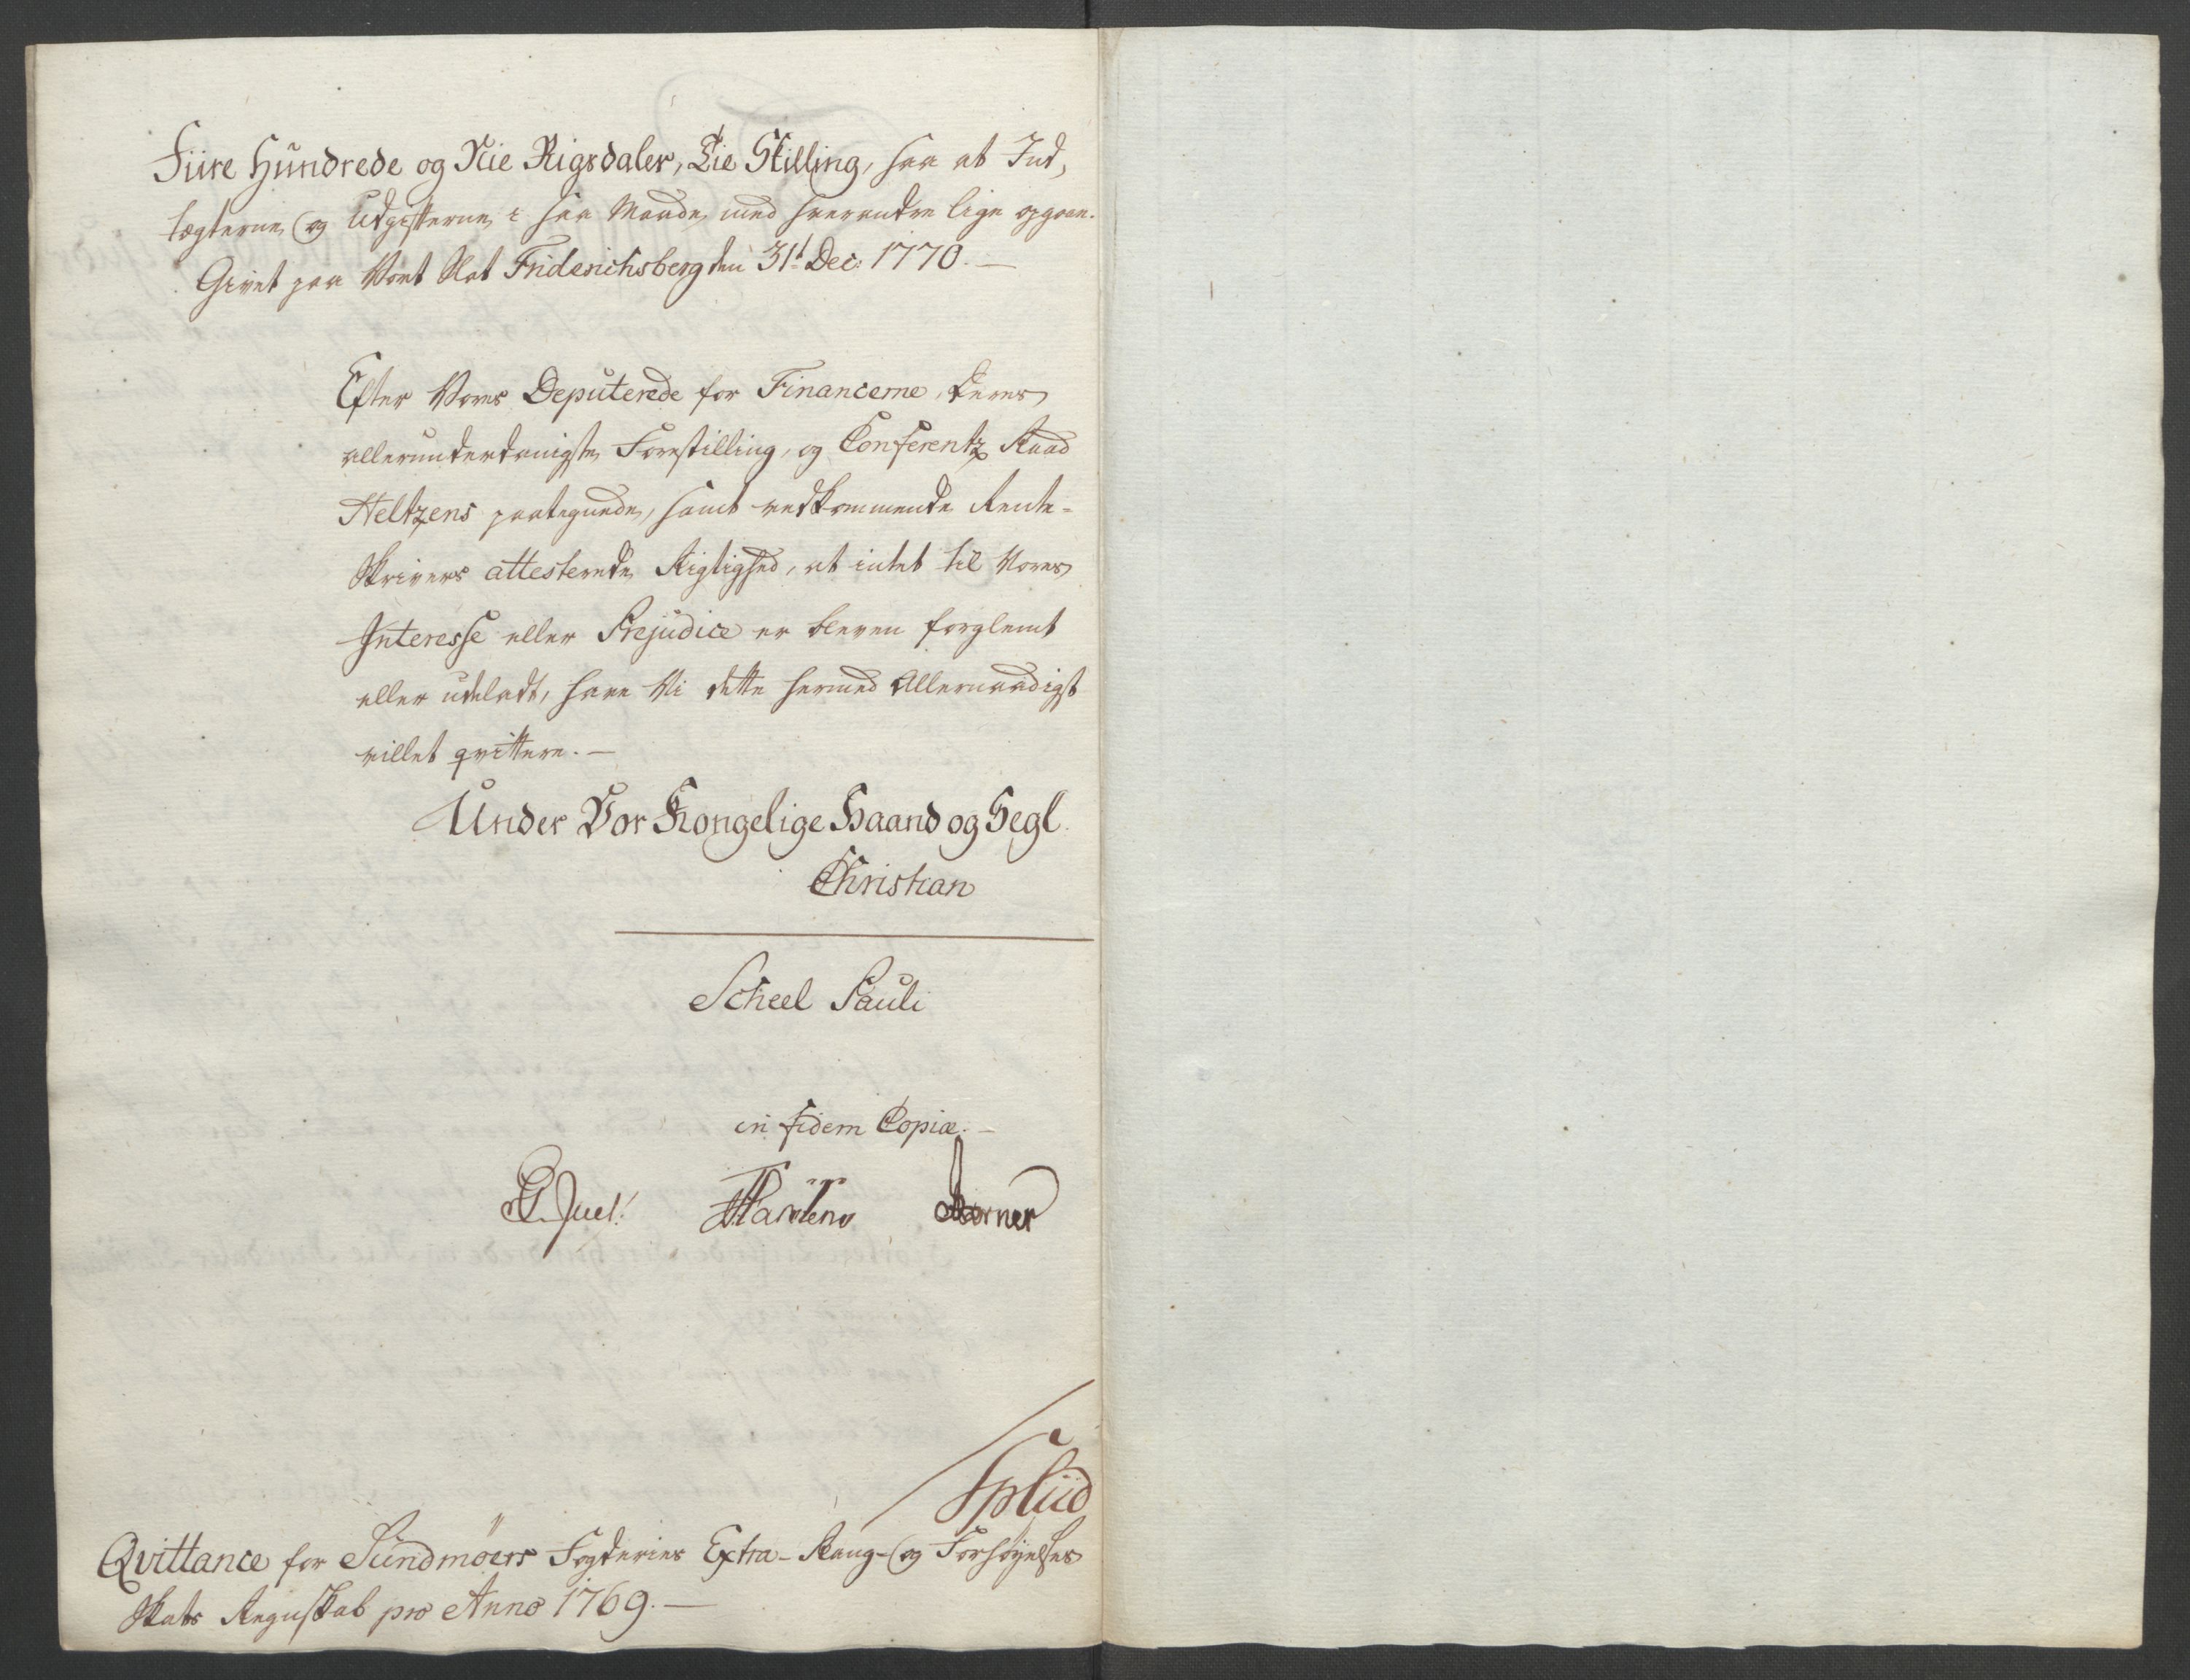 Fiire Hundrede og Nie Rigsdaler, Tie Skilling, saa at Ind,
tægterne og Udgifterne i saa Maade med hverandre lige opgaae.
Givet paa Vort Slot Friderichsberg den 31t Dec: 1770. —
Efter Vores Deputerede for Financerne, deres
allerunderdanigste Forestilling, og Conferentz Raad
Heltzens paategnede, samt vedkommende Rente-
Skrivers attesterede Rigtighed, at intet til Vores
Interesse eller Prejudice er bleven forglemt
eller udeladt, have Vi dette hermed Allernaadigst
villet qvittere. —
Under Vor Kongelige Haand og Segl.
Christian
Scheel Pauli
in fidem Copiæ. —
Juel. Børner
Spliid
Qvittance for Sundmøers Fogderies Extra- Rang- og Forhøyelses
Skats Regnskab pro Anno 1769. —